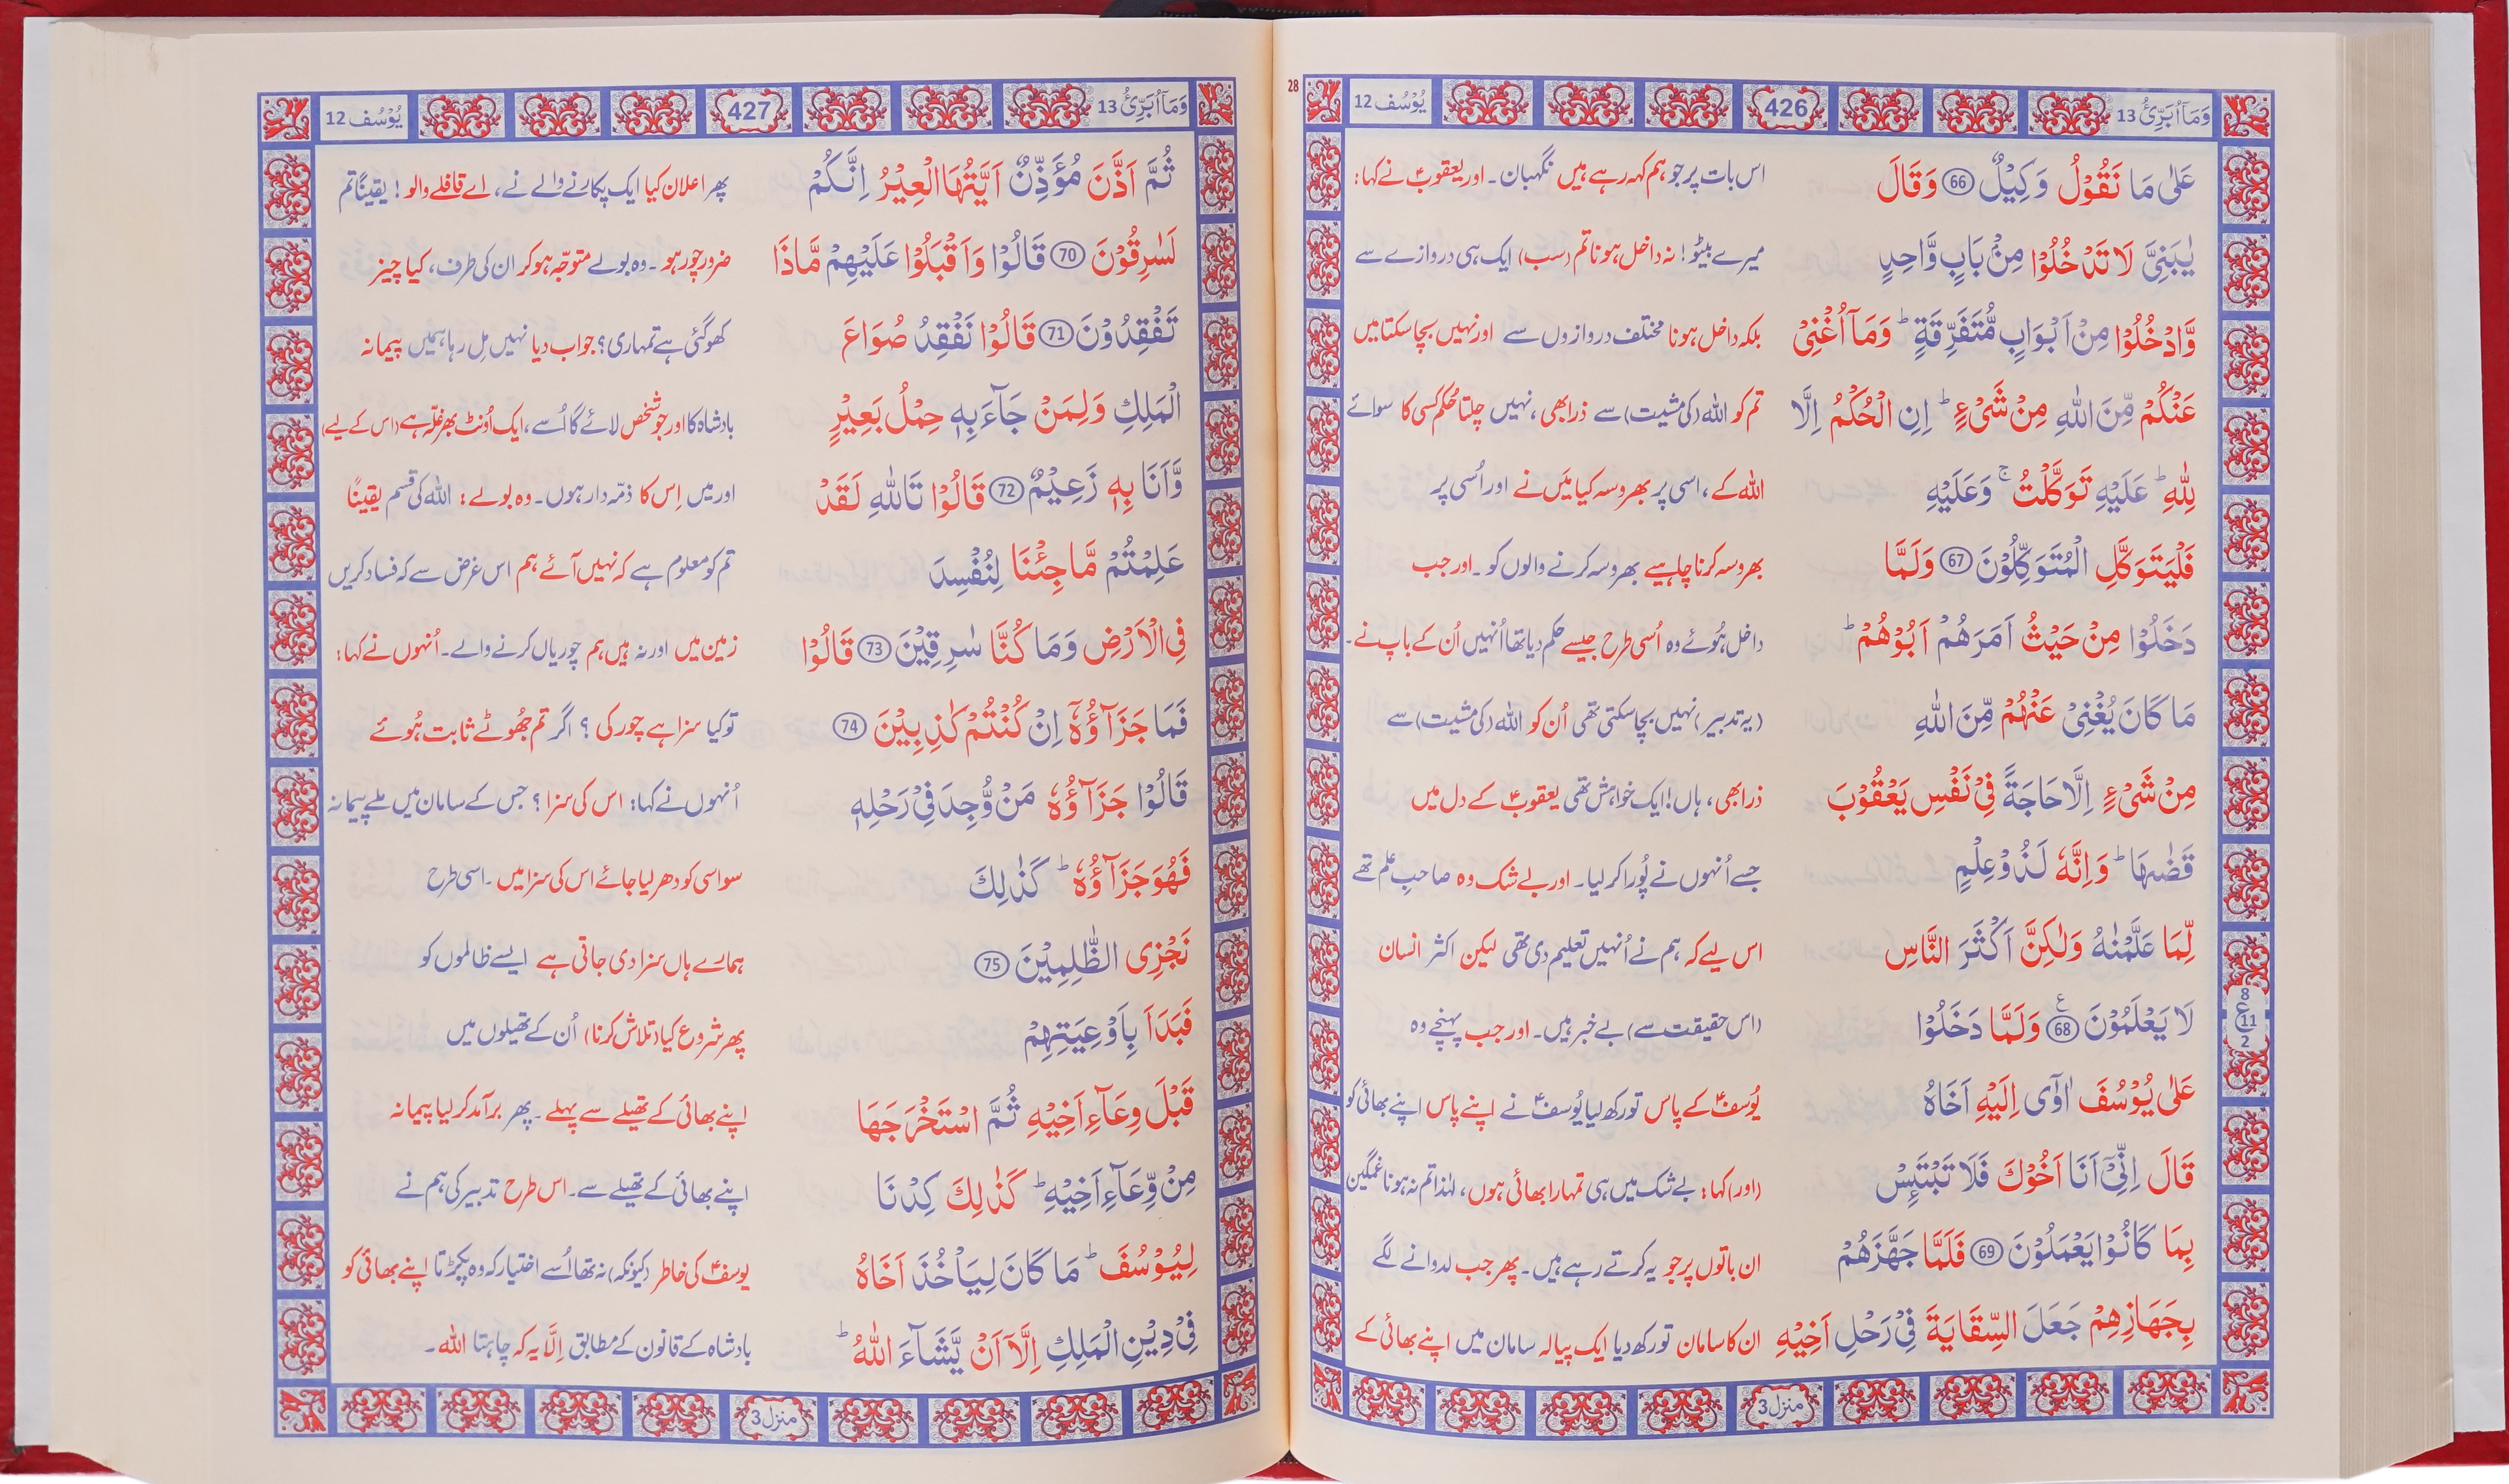 وَمَآ اُبَرِّئُ 13 426 يُوْسُف 12
28
عَلٰى مَا نَقُوْلُ وَكِيْلٌ 66 وَقَالَ اس بات پر جو ہم کہہ رہے ہیں نگہبان۔ اور یعقوبؑ نے کہا:
يٰبَنِىَّ لَا تَدْخُلُوْا مِنْۢ بَابٍ وَّاحِدٍ میرے بیٹو! نہ داخل ہونا تم (سب) ایک ہی دروازے سے
وَّادْخُلُوْا مِنْ اَبْوَابٍ مُّتَفَرِّقَةٍ ؕ وَمَآ اُغْنِىْ بلکہ داخل ہونا مختلف دروازوں سے اور نہیں بچا سکتا میں
عَنْكُمْ مِّنَ اللّٰهِ مِنْ شَىْءٍ ؕ اِنِ الْحُكْمُ اِلَّا تم کو اللہ (کی مشیت) سے ذرا بھی، نہیں چلتا حُکم کسی کا سوائے
لِلّٰهِ ؕ عَلَيْهِ تَوَكَّلْتُ ۚ وَعَلَيْهِ اللہ کے، اسی پر بھروسہ کیا میَں نے اور اُسی پر
فَلْيَتَوَكَّلِ الْمُتَوَكِّلُوْنَ 67 وَلَمَّا بھروسہ کرنا چاہیے بھروسہ کرنے والوں کو۔ اور جب
دَخَلُوْا مِنْ حَيْثُ اَمَرَهُمْ اَبُوْهُمْ ؕ داخل ہُوئے وہ اُسی طرح جیسے حکم دیا تھا اُنہیں اُن کے باپ نے۔
مَا كَانَ يُغْنِىْ عَنْهُمْ مِّنَ اللّٰهِ (یہ تدبیر) نہیں بچا سکتی تھی اُن کو اللہ (کی مشیت) سے
مِنْ شَىْءٍ اِلَّا حَاجَةً فِىْ نَفْسِ يَعْقُوْبَ ذرا بھی، ہاں! ایک خواہش تھی یعقوبؑ کے دل میں
قَضٰىهَا ؕ وَاِنَّهٗ لَذُوْ عِلْمٍ جسے اُنہوں نے پُورا کر لیا۔ اور بے شک وہ صاحبِ علم تھے
لِّمَا عَلَّمْنٰهُ وَلٰكِنَّ اَكْثَرَ النَّاسِ اس لیے کہ ہم نے اُنہیں تعلیم دی تھی لیکن اکثر انسان
لَا يَعْلَمُوْنَ 68 ع وَلَمَّا دَخَلُوْا (اس حقیقت سے) بے خبر ہیں۔ اور جب پہنچے وہ
8
11
2
عَلٰى يُوْسُفَ اٰوٰٓى اِلَيْهِ اَخَاهُ یُوسفؑ کے پاس تو رکھ لیا یُوسفؑ نے اپنے پاس اپنے بھائی کو
قَالَ اِنِّىْٓ اَنَا اَخُوْكَ فَلَا تَبْتَئِسْ (اور) کہا: بے شک میں ہی تمہارا بھائی ہوں، لہٰذا تم نہ ہونا غمگین
بِمَا كَانُوْا يَعْمَلُوْنَ 69 فَلَمَّا جَهَّزَهُمْ ان باتوں پر جو یہ کرتے رہے ہیں۔ پھر جب لدوانے لگے
بِجَهَازِهِمْ جَعَلَ السِّقَايَةَ فِىْ رَحْلِ اَخِيْهِ ان کا سامان تو رکھ دیا ایک پیالہ سامان میں اپنے بھائی کے
منزل 3
وَمَآ اُبَرِّئُ 13 427 يُوْسُف 12
ثُمَّ اَذَّنَ مُؤَذِّنٌ اَيَّتُهَا الْعِيْرُ اِنَّكُمْ پھر اعلان کیا ایک پکارنے والے نے، اے قافلے والو! یقیناً تم
لَسٰرِقُوْنَ 70 قَالُوْا وَاَقْبَلُوْا عَلَيْهِمْ مَّاذَا ضرور چور ہو۔ وہ بولے متوجّہ ہو کر ان کی طرف، کیا چیز
تَفْقِدُوْنَ 71 قَالُوْا نَفْقِدُ صُوَاعَ کھو گئی ہے تمہاری؟ جواب دیا نہیں مِل رہا ہمیں پیمانہ
الْمَلِكِ وَلِمَنْ جَآءَ بِهٖ حِمْلُ بَعِيْرٍ بادشاہ کا اور جو شخص لائے گا اُسے، ایک اُونٹ بھر غلّہ ہے (اس کے لیے)
وَّاَنَا بِهٖ زَعِيْمٌ 72 قَالُوْا تَاللّٰهِ لَقَدْ اور میں اِس کا ذمّہ دار ہوں۔ وہ بولے: اللہ کی قسم یقیناً
عَلِمْتُمْ مَّا جِئْنَا لِنُفْسِدَ تم کو معلوم ہے کہ نہیں آئے ہم اس غرض سے کہ فساد کریں
فِى الْاَرْضِ وَمَا كُنَّا سٰرِقِيْنَ 73 قَالُوْا زمین میں اور نہ ہیں ہم چوریاں کرنے والے۔ اُنہوں نے کہا:
فَمَا جَزَآؤُهٗۤ اِنْ كُنْتُمْ كٰذِبِيْنَ 74 تو کیا سزا ہے چور کی؟ اگر تم جُھوٹے ثابت ہُوئے
قَالُوْا جَزَآؤُهٗ مَنْ وُّجِدَ فِىْ رَحْلِهٖ اُنہوں نے کہا: اس کی سزا؟ جس کے سامان میں ملے پیمانہ
فَهُوَ جَزَآؤُهٗ ؕ كَذٰلِكَ سو اسی کو دھر لیا جائے اس کی سزا میں۔ اسی طرح
نَجْزِى الظّٰلِمِيْنَ 75 ہمارے ہاں سزا دی جاتی ہے ایسے ظالموں کو
فَبَدَاَ بِاَوْعِيَتِهِمْ پھر شروع کیا (تلاش کرنا) اُن کے تھیلوں میں
قَبْلَ وِعَآءِ اَخِيْهِ ثُمَّ اسْتَخْرَجَهَا اپنے بھائی کے تھیلے سے پہلے۔ پھر برآمد کر لیا پیمانہ
مِنْ وِّعَآءِ اَخِيْهِ ؕ كَذٰلِكَ كِدْنَا اپنے بھائی کے تھیلے سے۔ اس طرح تدبیر کی ہم نے
لِيُوْسُفَ ؕ مَا كَانَ لِيَاْخُذَ اَخَاهُ یوسفؑ کی خاطر (کیونکہ) نہ تھا اُسے اختیار کہ وہ پکڑتا اپنے بھائی کو
فِىْ دِيْنِ الْمَلِكِ اِلَّاۤ اَنْ يَّشَآءَ اللّٰهُ ؕ بادشاہ کے قانون کے مطابق اِلَّا یہ کہ چاہتا اللہ۔
منزل 3